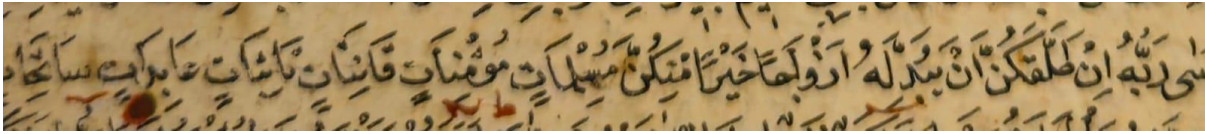 سى رَبُّهُ اِنْ طَلَّقَكُنَّ اَنْ يُبْدِلَهُ اَزْوَاجًا خَيْرًا مِنْكُنَّ مُسْلِمَاتٍ مُؤْمِنَاتٍ قَانِتَاتٍ تَائِبَاتٍ عَابِدَاتٍ سَائِحَات